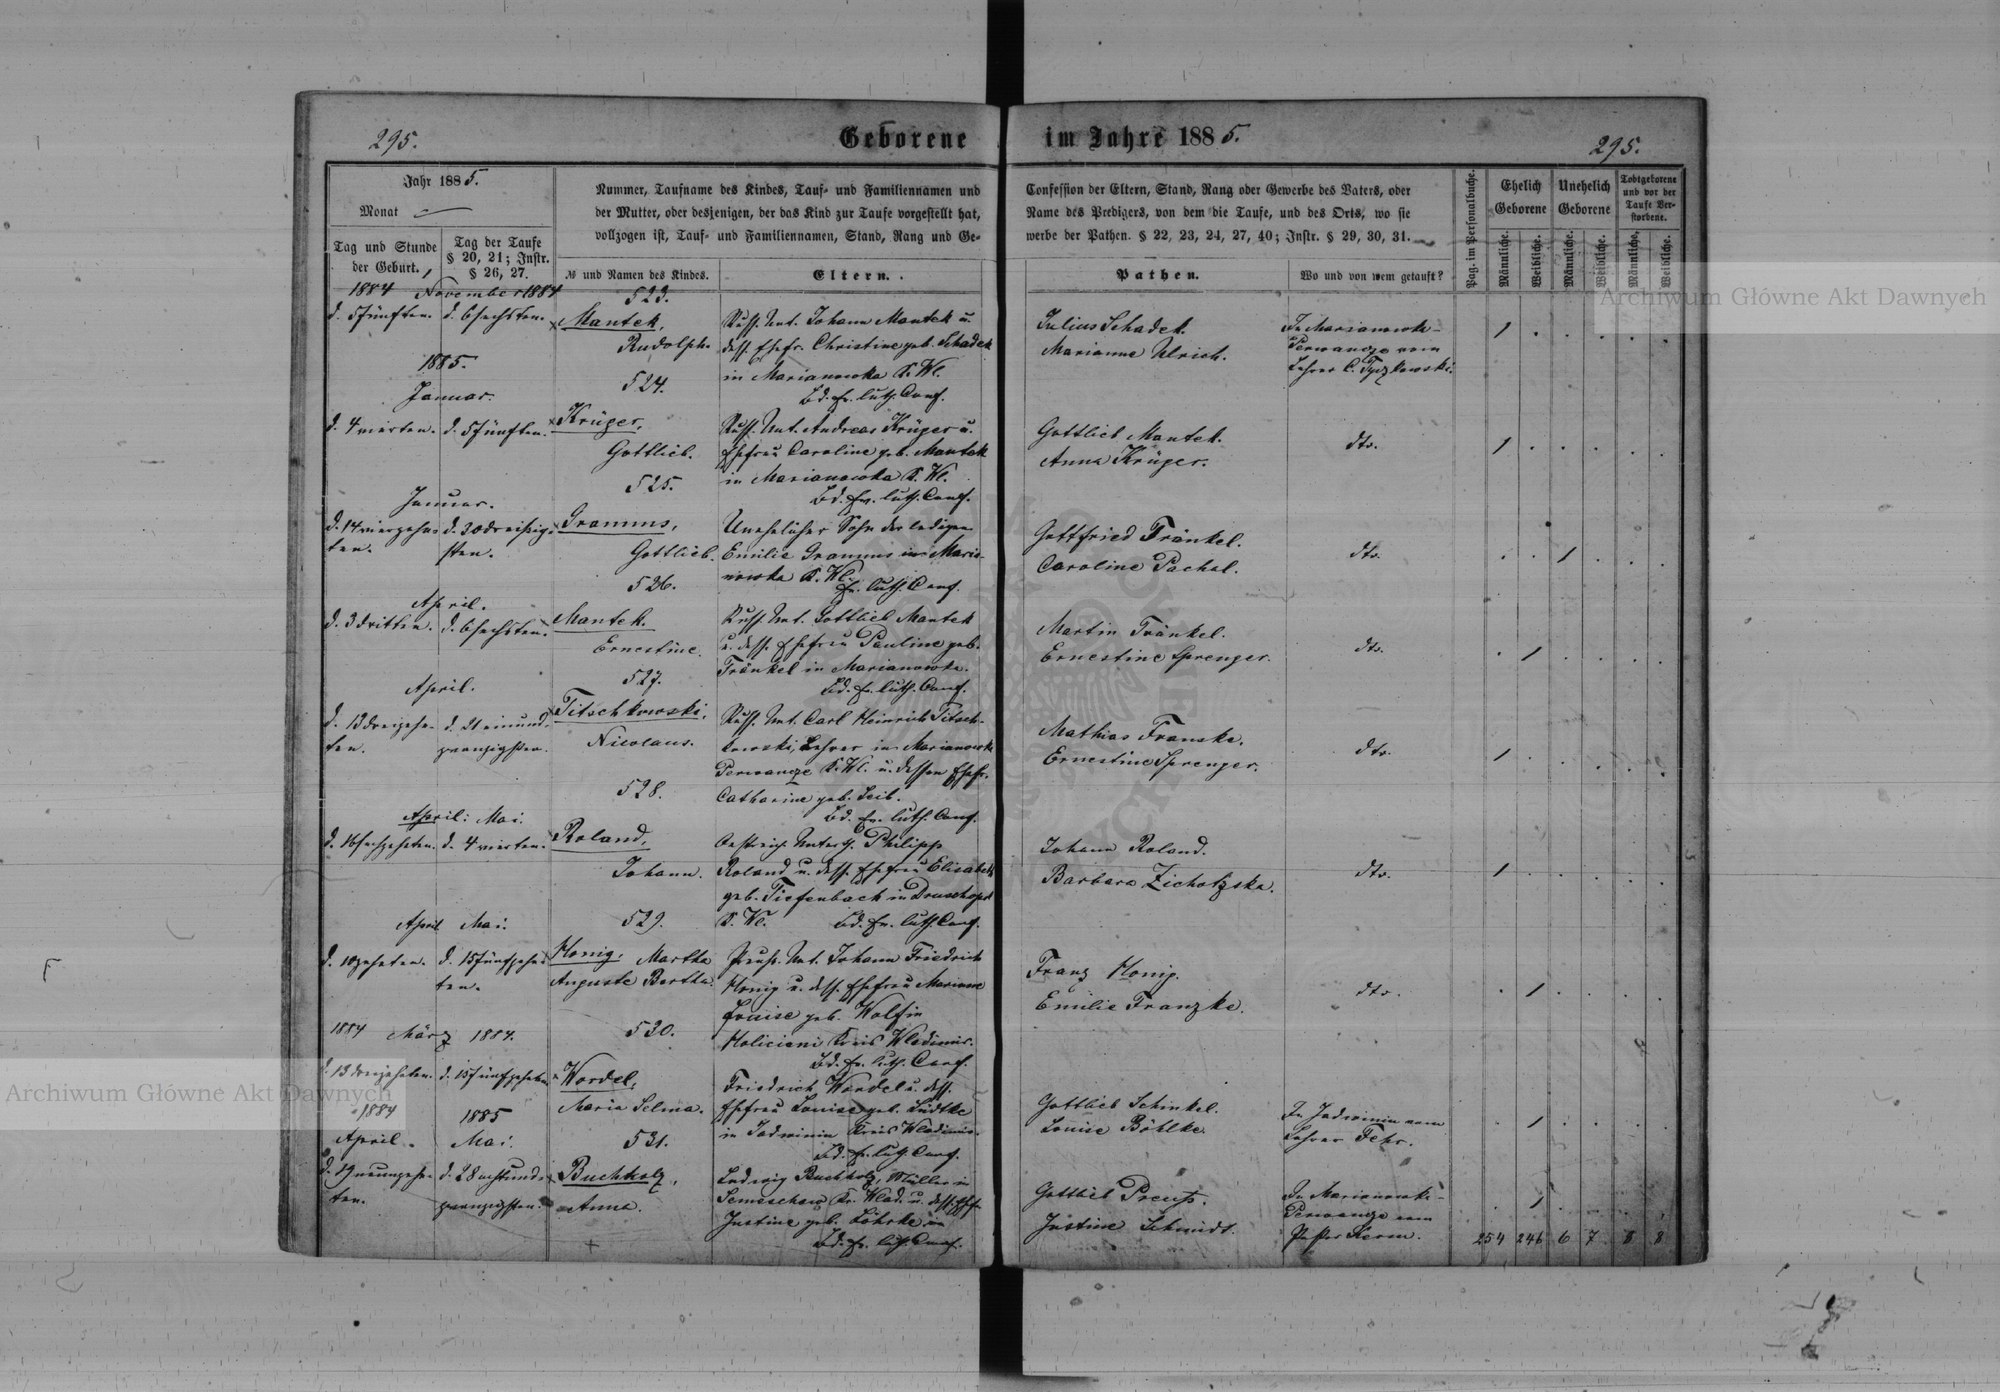 295.
Geborene im Jahre 1885.
295.
Jahr 1885.
Monat
Tag und Stunde
der Geburt.
Tag der Taufe
§ 20, 21; Instr.
§ 26, 27.
Nummer, Taufname des Kindes, Tauf- und Familiennamen und
der Mutter, oder desjenigen, der das Kind zur Taufe vorgestellt hat,
vollzogen ist, Tauf- und Familiennamen, Stand, Rang und Ge-
№ und Namen des Kindes.
Eltern.
Confession der Eltern, Stand, Rang oder Gewerbe des Vaters, oder
Name des Predigers, von dem die Taufe, und des Orts, wo sie
werbe der Pathen. § 22, 23, 24, 27, 40; Instr. § 29, 30, 31.
Pathen.
Wo und von wem getauft?
Pag. im Personalbuche.
Ehelich
Geborene
Unehelich
Geborene
Todtgeborene
und vor der
Taufe Ver-
storbene.
Männliche.
Weibliche.
Männliche.
Weibliche.
Männliche.
Weibliche.
1884 November 1884
d. 5 fünften. d. 6 sechsten.
523.
Mantek,
Rudolph.
Russ. Unt. Johann Mantek u.
dess. Ehefr. Christine geb. Schadek
in Marianowka K. Wl.
Bd. Ev. luth. Conf.
Julius Schadek.
Marianne Ulrich.
In Marianowka-
Perwange vom
Lehrer C.
1
1885.
Januar.
d. 4 vierten. d. 5 fünften.
524.
Krüger,
Gottlieb.
Russ. Unt. Andreas Krüger u.
Ehefrau Caroline geb. Mantek
in Marianowka K. Wl.
Bd. Ev. luth. Conf.
Gottlieb Mantek.
Anna Krüger.
dto.
1
Januar.
d. 14 vierzehn-
ten.
d. 30 dreißig-
sten.
525.
Gramms,
Gottlieb.
Unehelicher Sohn der ledigen
Emilie Gramms in Maria-
nowka K. Wl.
Ev. luth. Conf.
Gottfried Fränkel.
Caroline Pachal.
dto.
1
April.
d. 3 dritten. d. 6 sechsten.
526.
Mantek.
Ernestine.
Russ. Unt. Gottlieb Mantek
u. dess. Ehefrau Pauline geb.
Fränkel in Marianowka.
Bd. Ev. luth. Conf.
Martin Fränkel.
Ernestine Sprenger.
dto.
1
April.
d. 13 dreizehn-
ten.
d. 21 einund-
zwanzigsten.
527.
Titschkowski,
Nicolaus.
Russ. Unt. Carl Heinrich Titsch-
kowski, Lehrer in Marianowka
Perwange K. Wl. u. dessen Ehefr.
Catharine geb. Leib.
Bd. Ev. luth. Conf.
Mathias Franske.
Ernestine Sprenger.
dto.
1
April: Mai.
d. 16 sechzehnten. d. 4 vierten.
528.
Roland,
Johann.
Oestreich. Unterth. Philipp
Roland u. dess. Ehefrau Elisabeth
geb. Tiefenbach in
K. Wl. Bd. Ev. luth. Conf.
Johann Roland.
Barbara
dto.
1
April Mai.
d. 10 zehnten. d. 15 fünfzehn-
ten.
529.
Honig, Martha
Auguste Bertha.
Preuß. Unt. Johann Friedrich
Honig u. dess. Ehefrau Marianne
Louise geb. Wolf in
Kreis Wladimir.
Bd. Ev. luth. Conf.
Franz Honig.
Emilie Franzke.
dto.
1
1884 März 1884.
d. 13 dreizehnten. d. 15 fünfzehnten.
530.
Wordel,
Maria Selma.
Friedrich Wordel u. dess.
Ehefrau Louise geb. Lüdtke
in Jadwinin Kreis Wladimir.
Bd. Ev. luth. Conf.
Gottlieb Schinkel.
Louise Böhlke.
In Jadwinin vom
Lehrer Fehr.
1
1884 1885
April. Mai.
d. 19 neunzehn-
ten.
d. 28 achtund-
zwanzigsten.
531.
Buchholz,
Anna.
Ludwig Buchholz, Müller in
Kr. Wlad. u. dess. Ehefr.
Justine geb.
Bd. Ev. luth. Conf.
Gottlieb Preuß.
Justine Schmidt.
In Marianowka-
Perwange vom
Pastor Kerm.
1
254 246 6 7 8 8
Archiwum Główne Akt Dawnych
Archiwum Główne Akt Dawnych